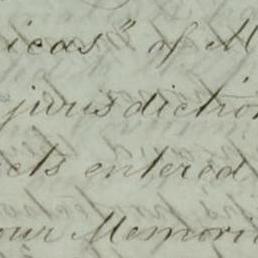 icas" of M
jurisdiction
cts entered
our Memori